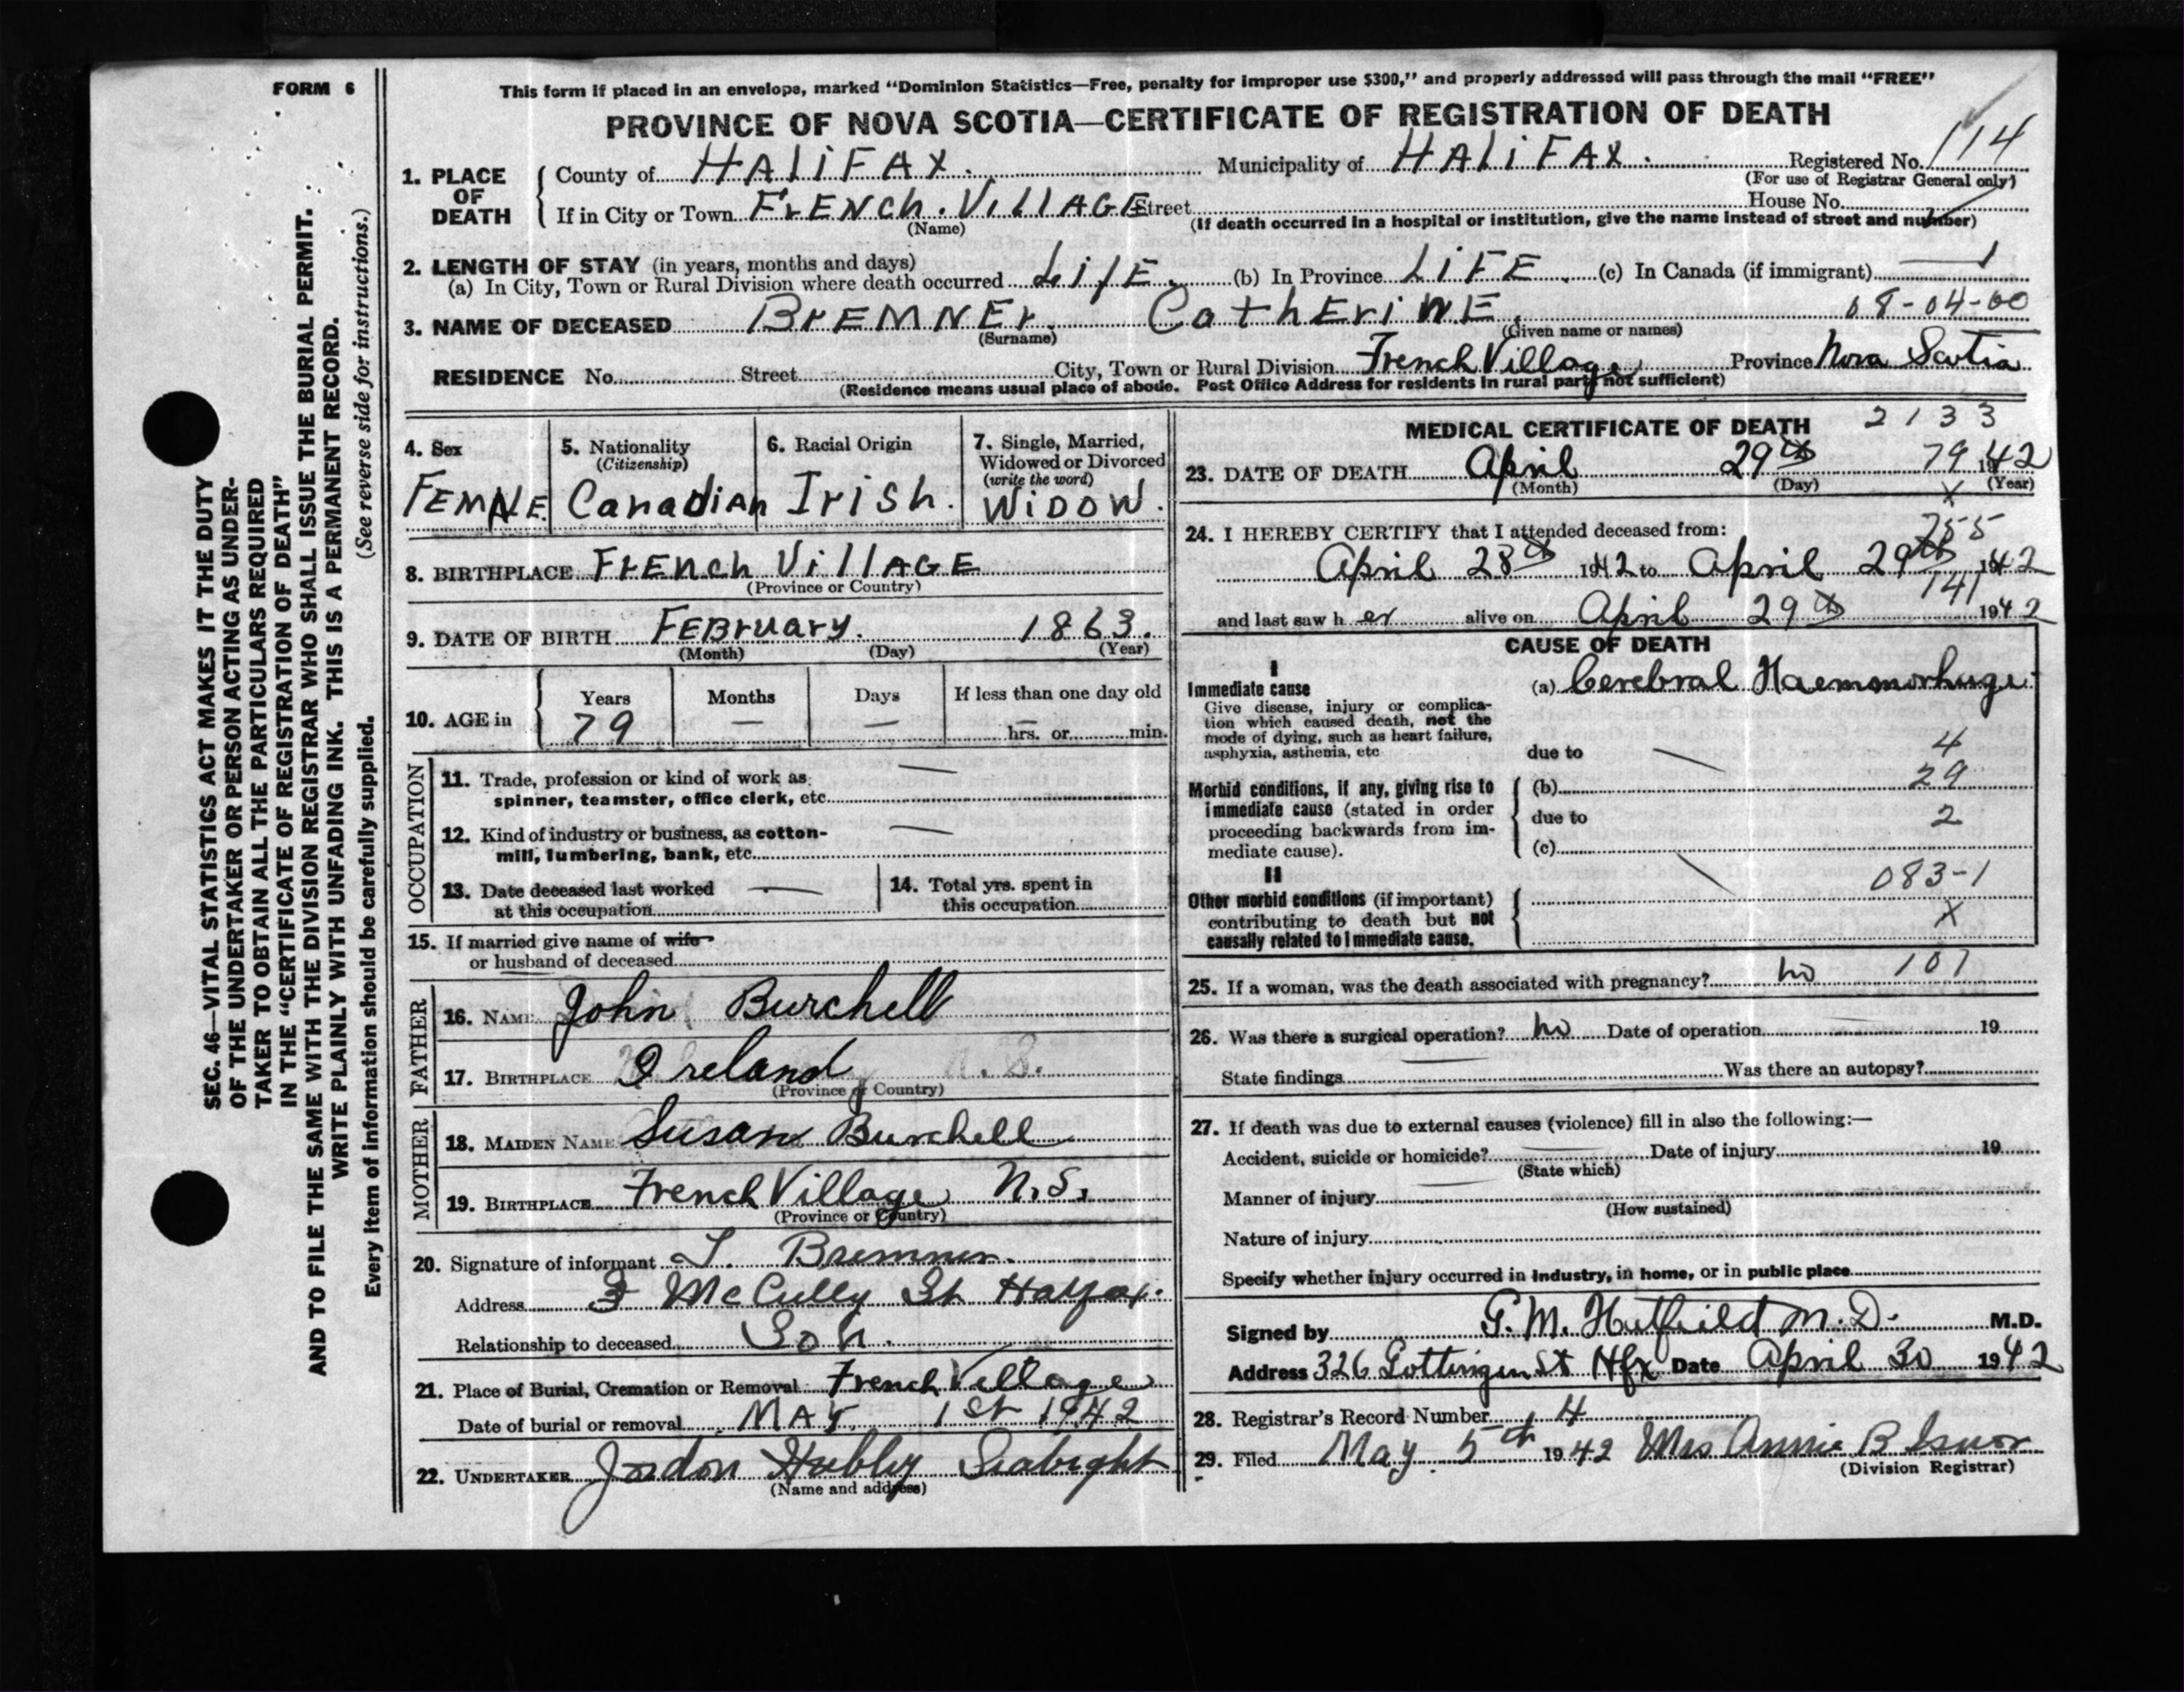 FORM 6
This form if placed in an envelope, marked "Dominion Statistics—Free, penalty for improper use $300," and properly addressed will pass through the mail "FREE"
PROVINCE OF NOVA SCOTIA—CERTIFICATE OF REGISTRATION OF DEATH
SEC. 46—VITAL STATISTICS ACT MAKES IT THE DUTY
OF THE UNDERTAKER OR PERSON ACTING AS UNDER-
TAKER TO OBTAIN ALL THE PARTICULARS REQUIRED
IN THE "CERTIFICATE OF REGISTRATION OF DEATH"
AND TO FILE THE SAME WITH THE DIVISION REGISTRAR WHO SHALL ISSUE THE BURIAL PERMIT.
WRITE PLAINLY WITH UNFADING INK. THIS IS A PERMANENT RECORD.
Every item of information should be carefully supplied. (See reverse side for instructions.)
1. PLACE OF DEATH
County of HALIFAX. Municipality of HALIFAX. Registered No. 114
(For use of Registrar General only)
If in City or Town FrENch. VillAGE Street House No.
(Name) (If death occurred in a hospital or institution, give the name instead of street and number)
2. LENGTH OF STAY (in years, months and days)
(a) In City, Town or Rural Division where death occurred LifE. (b) In Province LIFE. (c) In Canada (if immigrant)
3. NAME OF DECEASED BrEMNEr. CathEriNE. 08-04-00
(Surname) (Given name or names)
RESIDENCE No. Street City, Town or Rural Division French Village Province Nova Scotia
(Residence means usual place of abode. Post Office Address for residents in rural parts not sufficient)
4. Sex
FEMALE
5. Nationality
(Citizenship)
Canadian
6. Racial Origin
Irish.
7. Single, Married,
Widowed or Divorced
(write the word)
WIDOW.
8. BIRTHPLACE FrENch VillAGE
(Province or Country)
9. DATE OF BIRTH FEBruary. 1863.
(Month) (Day) (Year)
10. AGE in
Years Months Days If less than one day old
79 — — — hrs. or min.
OCCUPATION
11. Trade, profession or kind of work as
spinner, teamster, office clerk, etc. —
12. Kind of industry or business, as cotton-
mill, lumbering, bank, etc. —
13. Date deceased last worked —
at this occupation
14. Total yrs. spent in
this occupation
15. If married give name of wife
or husband of deceased
FATHER
16. NAME John Burchell
17. BIRTHPLACE Ireland
(Province or Country)
MOTHER
18. MAIDEN NAME Susan Burchell
19. BIRTHPLACE French Village N.S.
(Province or Country)
20. Signature of informant Bremner.
Address 3 McCully St Halfax.
Relationship to deceased Son.
21. Place of Burial, Cremation or Removal French Village
Date of burial or removal MAY 1st 1942
22. UNDERTAKER Jordon Hubley Seabright
(Name and address)
MEDICAL CERTIFICATE OF DEATH 2133
23. DATE OF DEATH April 29th 79 1942
(Month) (Day) (Year)
X
24. I HEREBY CERTIFY that I attended deceased from:
255
April 28th 1942 to April 29th 1942
141
and last saw her alive on April 29th 1942
CAUSE OF DEATH
I
Immediate cause
Give disease, injury or complica-
tion which caused death, not the
mode of dying, such as heart failure,
asphyxia, asthenia, etc
(a) Cerebral Haemmorhage
due to 4
Morbid conditions, if any, giving rise to
immediate cause (stated in order
proceeding backwards from im-
mediate cause).
(b) 29
due to 2
(c)
II
Other morbid conditions (if important)
contributing to death but not
causally related to immediate cause.
083-1
X
25. If a woman, was the death associated with pregnancy? no 101
26. Was there a surgical operation? no Date of operation 19
State findings Was there an autopsy?
27. If death was due to external causes (violence) fill in also the following:—
Accident, suicide or homicide? Date of injury 19
(State which)
Manner of injury
(How sustained)
Nature of injury
Specify whether injury occurred in industry, in home, or in public place
Signed by G. M. Hatfield M.D. M.D.
Address 326 Gottingen St Hfx Date April 30 1942
28. Registrar's Record Number 14
29. Filed May 5th 1942 Mrs Annie B Isnor
(Division Registrar)